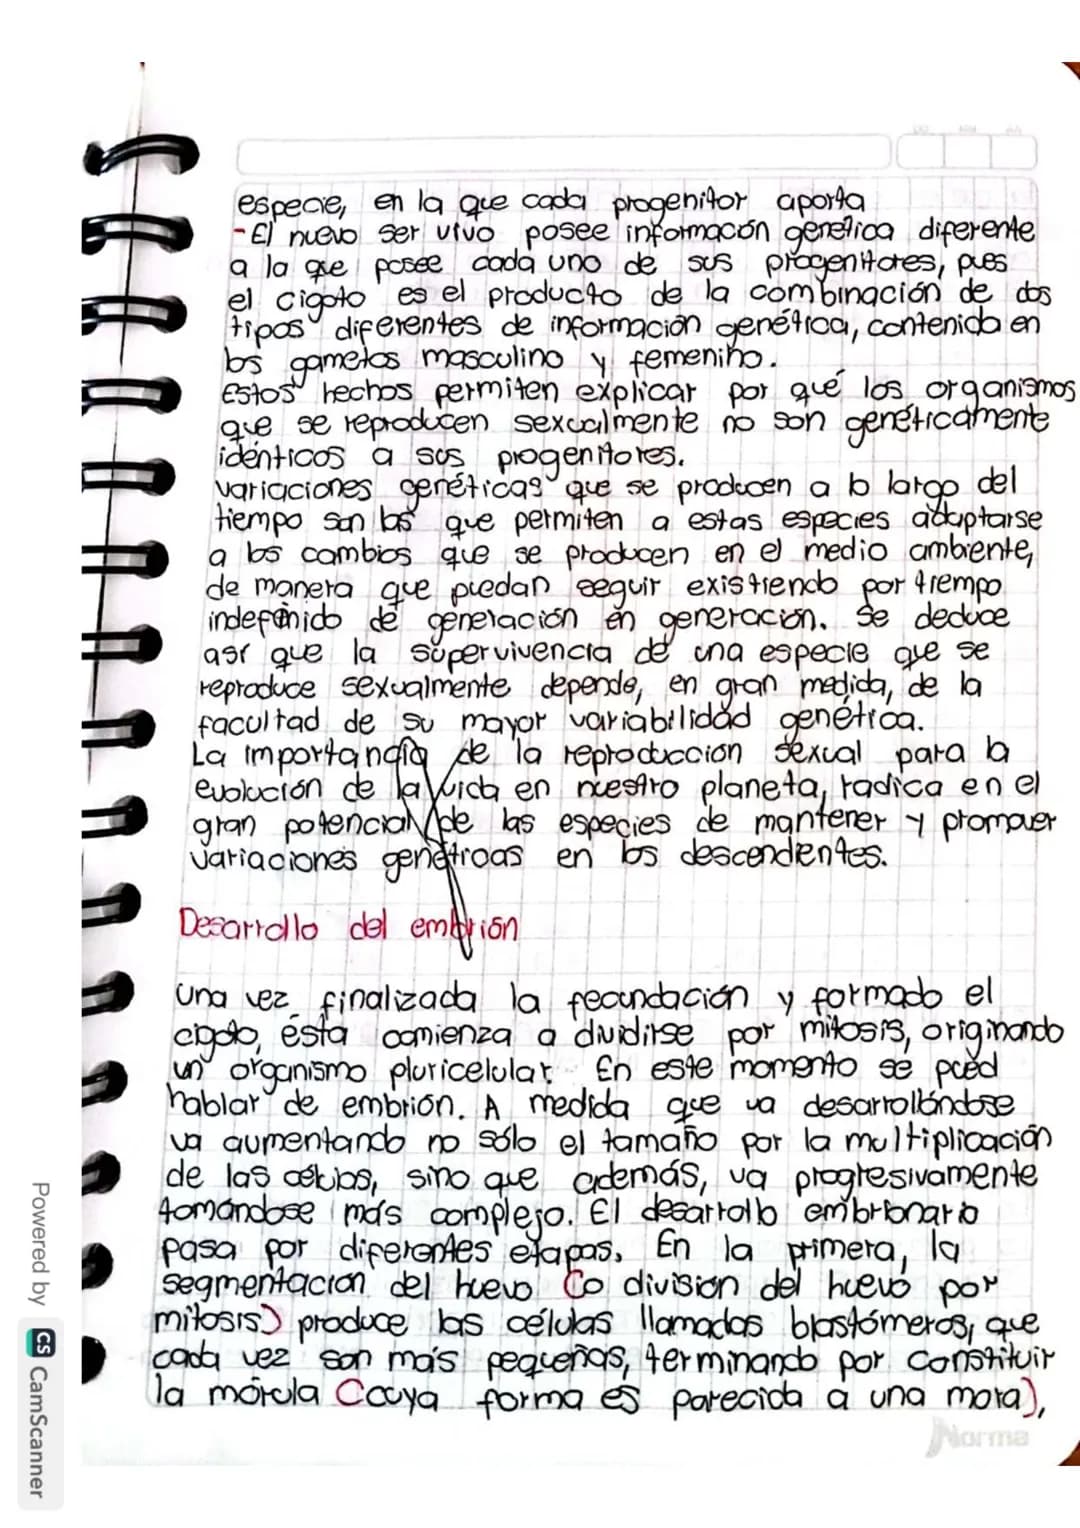 especie, en la que cada progenitor aporta
- El nuevo ser vivo posee información genética diferente
a la que posee cada uno de sus progenitores, pues
el cigoto es el producto de la combinación de dos
tipos diferentes de información genética, contenida en
los gametos masculino y femenino.
Estos hechos permiten explicar por qué los organismos
que se reproducen sexualmente no son genéticamente
idénticos a sus progenitores.
variaciones genéticas que se producen a lo largo del
tiempo son las que permiten a estas especies adaptarse
a los cambios que se producen en el medio ambiente,
de manera que puedan seguir existiendo por tiempo
indefinido de generación en generación. Se deduce
así que la supervivencia de una especie que se
reproduce sexualmente depende, en gran medida, de la
facultad de su mayor variabilidad genética.
La importancia de la reproducción sexual para la
evolución de la vida en nuestro planeta, radica en el
gran potencial de las especies de mantener y promover
variaciones genéticas en los descendientes.
Desarrollo del embrión
Una vez finalizada la fecundación y formado el
cigoto, ésta comienza a dividirse por mitosis, originando
un organismo pluricelular. En este momento se pued
hablar de embrión. A medida que va desarrollándose
va aumentando no sólo el tamaño por la multiplicación
de las células, sino que además, va progresivamente
tomándose más complejo. El desarrollo embrionario
pasa por diferentes etapas. En la primera, la
segmentación del huevo (o división del huevo por
mitosis) produce las células llamadas blastómeros, que
cada vez son más pequeñas, terminando por constituir
la mórula (cuya forma es parecida a una mora),
Norma
Powered by CS CamScanner